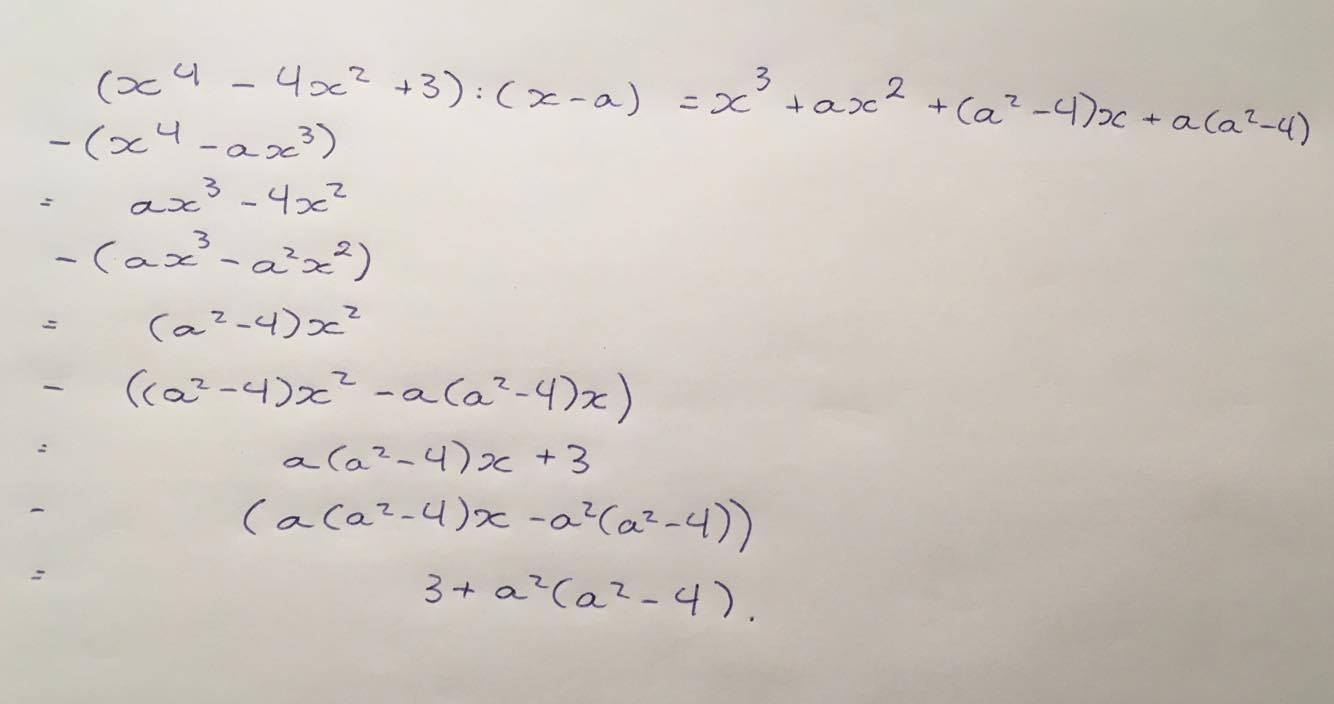 (x⁴ - 4x² + 3) : (x - a) = x³ + ax² + (a² - 4)x + a(a² - 4)
- (x⁴ - ax³)
= ax³ - 4x²
- (ax³ - a²x²)
= (a² - 4)x²
- ((a² - 4)x² - a(a² - 4)x)
= a(a² - 4)x + 3
- (a(a² - 4)x - a²(a² - 4))
= 3 + a²(a² - 4).